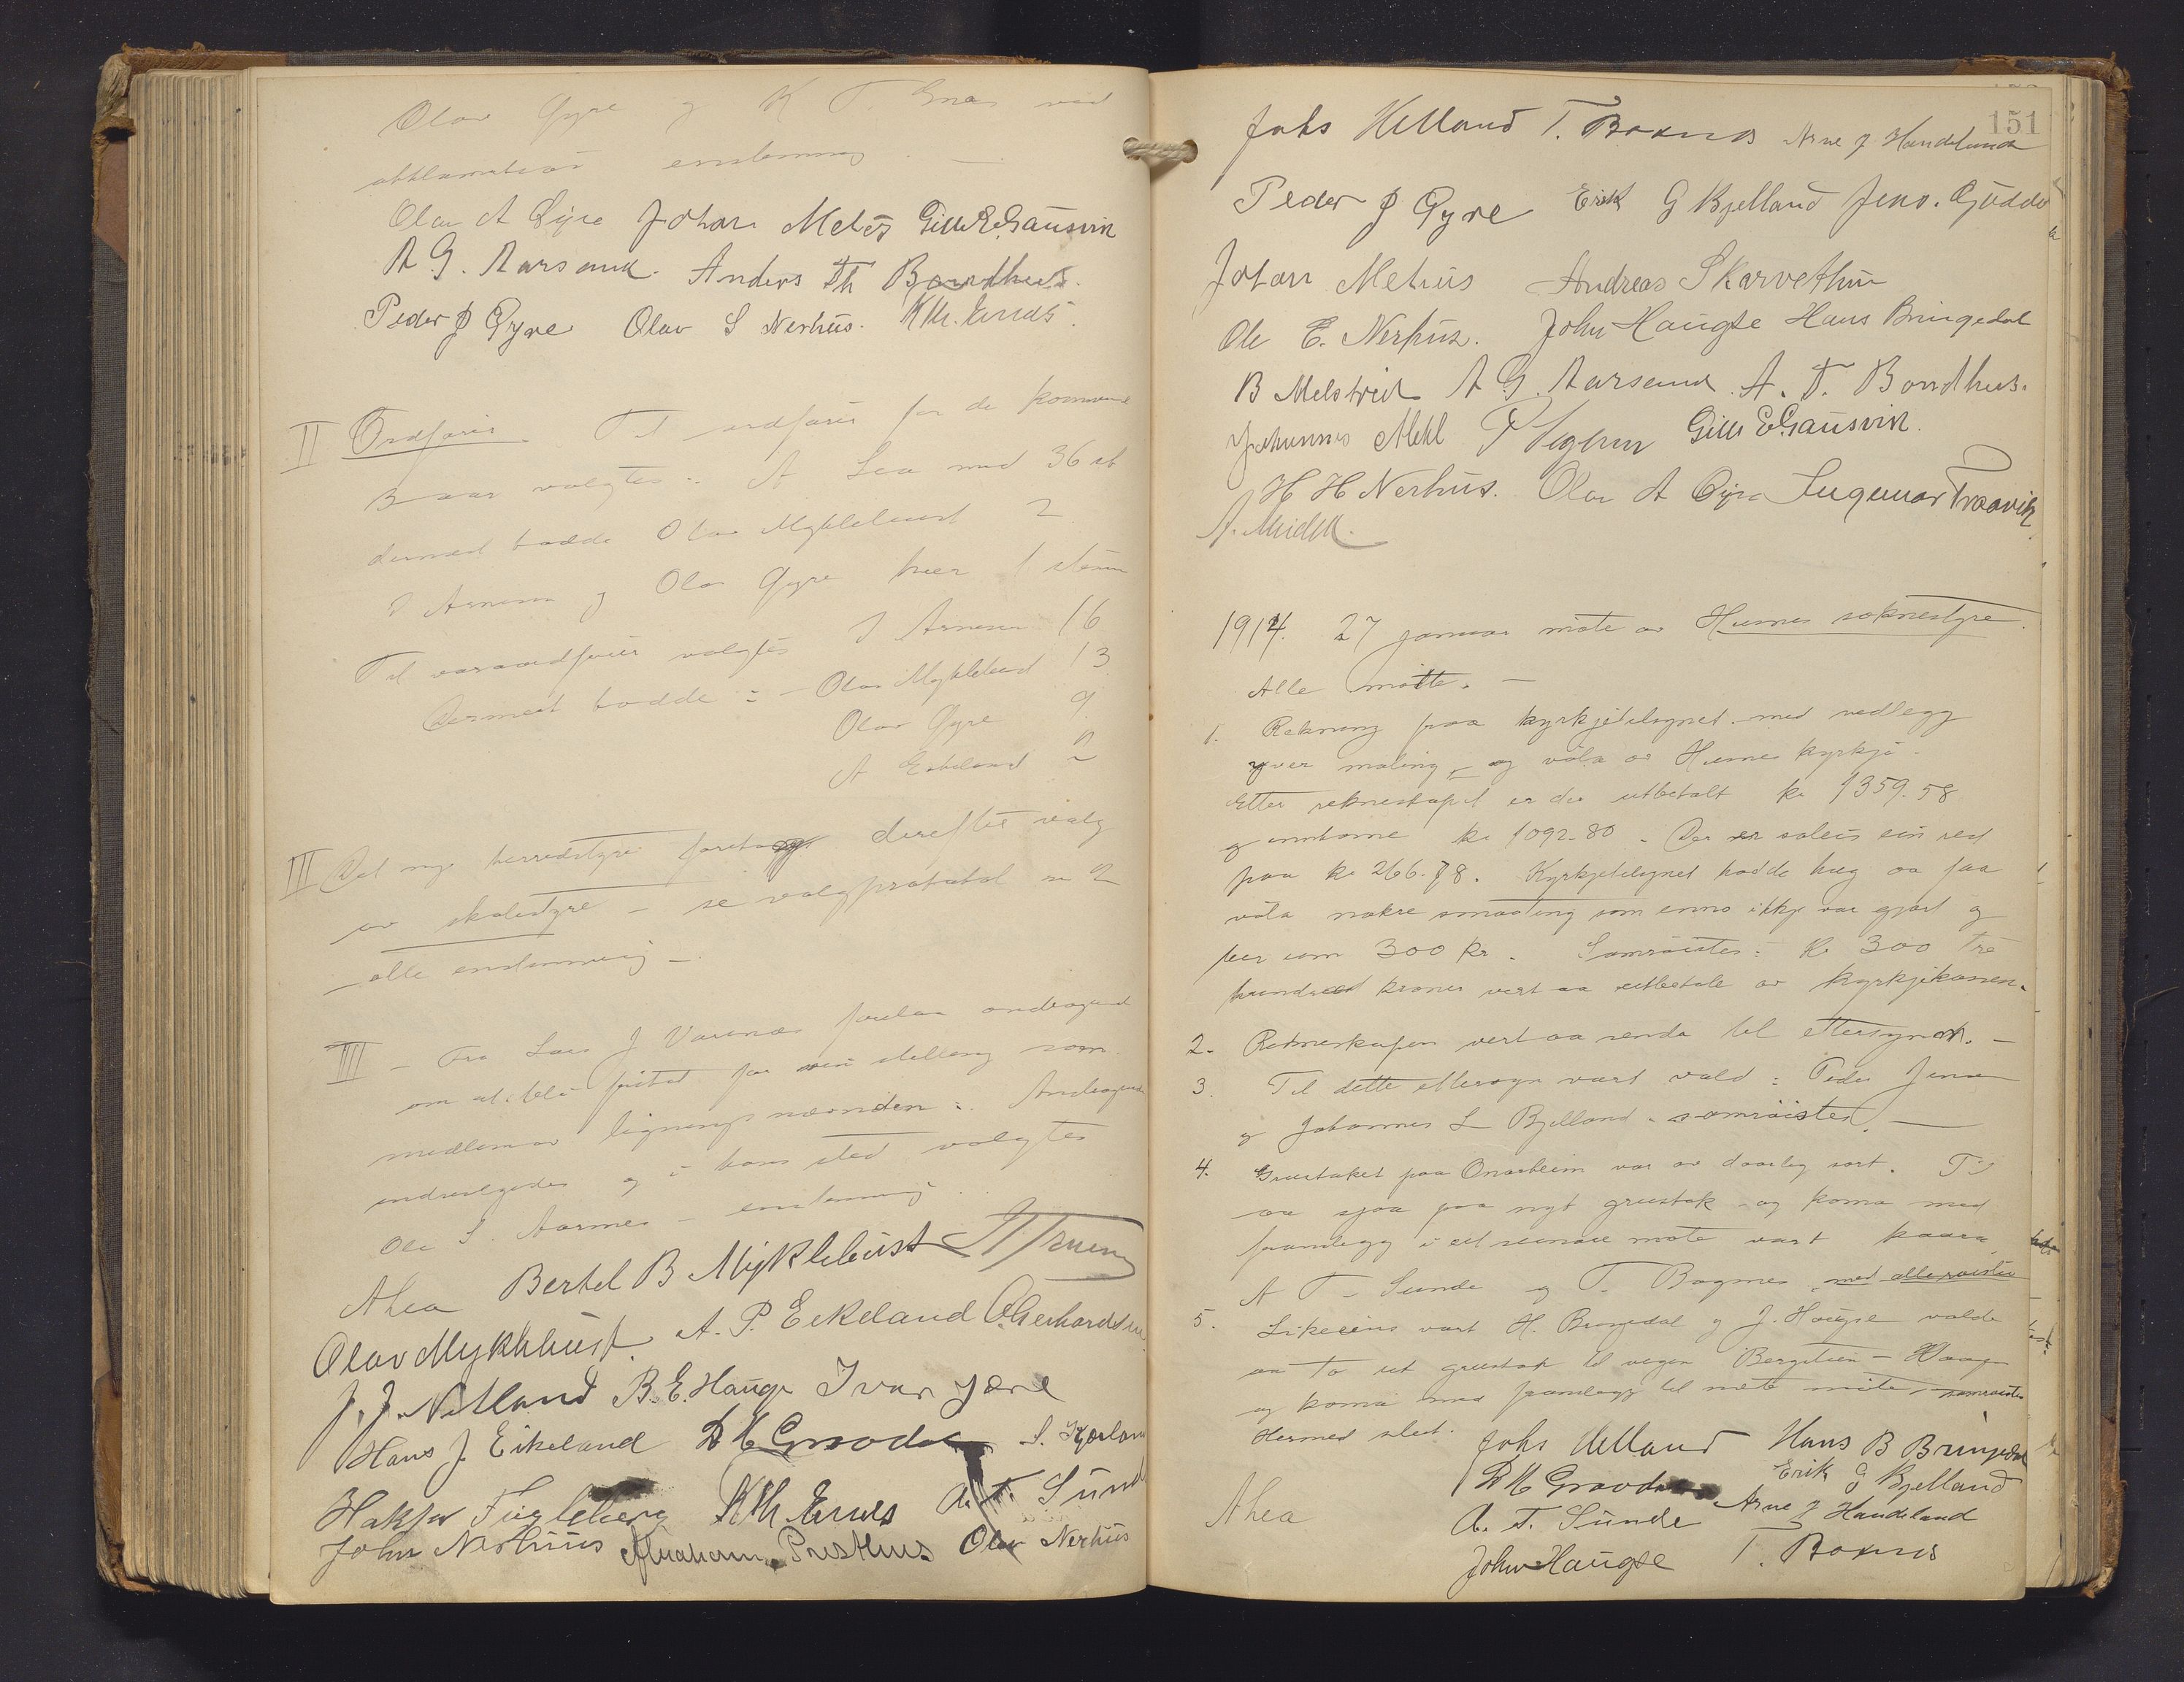 Olav Gyre og K T. Enæs ved
akklamation enstemmig
Olav A Gyre Johan Mehus Gitle E. Gausvik
A G. Aarsand. Anders Th Bondhus.
Peder J Gyre Olav S Nerhus. K Th. Enæs.
II Ordfører Til ordfører for de kommende
3 aar valgtes: A Lea med 36 st
dernæst hadde Olav Myklebust 2
og Olav Gyre hver 1 stemme
Til varaordfører valgtes 16
Dernæst hadde: - Olav Myklebust 13
Olav Gyre 9.
A Eikeland 2
III Det nye herredstyre foretog derefter valg
av skolestyre - se valgprotokol
alle enstemmig -
III - Fra Lars J Varenæs forelaa andragende
om at bli fritat for sin stilling som
medlem av ligningsnævnden. Andragendet
indvilgedes og i hans sted valgtes
Ole S. - enstemmig.
A Lea Bertel B Myklebust
Olav Myklebust. A. P. Eikeland O. Gerhardsen
J. J. Netland B. E. Hauge Ivar Jære
Hans J Eikeland
Haktor Fugleberg K Th Enæs A. T. Sunde
John Nerhus Abraham Presthus Olav Nerhus
151
Johs Helland T. Boxnes Arne J Handeland
Peder J Gyre Erik G Bjelland Jens. Gjuddo
Johan Mehus Andreas Skarvethun
Ole E. Nerhus. John Haugse Hans Bringedal
B Melstveit A G. Aarsand A. T. Bondhus.
Johannes Mehl Gitle E. Gausvik.
H H Nerhus. Olav A Gyre Ingemar Traavik
1914. 27 januar møte av Husnes soknestyre.
Alle møtte. -
1. Rekning fraa kyrkjetilsynet med vedlegg
yver maling og vøla av Husnes kyrkja.
Etter rekneskapet er der utbetalt kr 1359.58
og inntøme kr 1092.80. Der er soleis ein rest
paa kr 266.78. Kyrkjetilsynet hadde hug aa faa
vøla nokre smaating som enno ikkje var gjort og
beer om 300 kr. Samrøistes: Kr 300 tre
hundred kroner vert aa utbetale av kyrkjekassen.
2. Rekneskapen vert aa senda til ettersynet. -
3. Til dette ettersyn vart vald: Peder
og Johannes L Bjelland. samrøistes. -
4. Grustaket paa Onarheim var av daarleg sort. Til
aa sjaa paa nyt grustak og koma med
framlegg i eit seinare møte vart kaara
A T. Sunde og T. Bogsnes. med alle røister
5. Likeeins vart H. Bringedal og J. Haugse valde
aa ta ut grustak til vegen Bergstein - Waage
og koma med framlegg til næste møte, samrøistes
Hermed slut.
A Lea
Johs Helland Hans B Bringedal
Erik G Bjelland
A. T. Sunde Arne J Handeland
John Haugse T. Boxnes